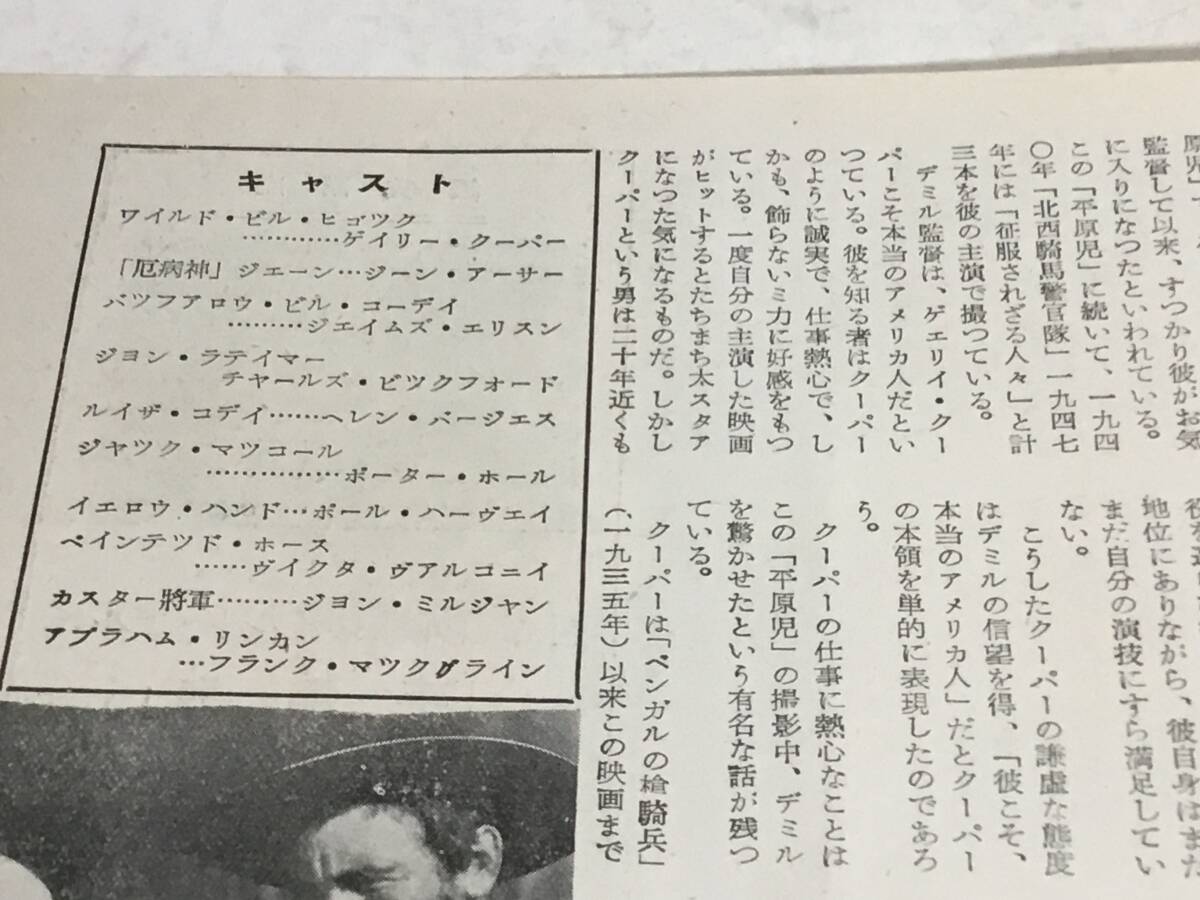 キャスト
ワイルド・ビル・ヒョツク
…………ゲイリー・クーパー
「厄病神」ジエーン…ジーン・アーサー
バツフアロウ・ビル・コーデイ
………ジエイムズ・エリスン
ジヨン・ラテイマー
チャールズ・ビツクフオード
ルイザ・コデイ……ヘレン・バージエス
ジヤツク・マツコール
……………ポーター・ホール
イエロウ・ハンド…ポール・ハーヴエイ
ペインテツド・ホース
……ヴイクタ・ヴアルコニイ
カスター將軍………ジヨン・ミルジヤン
アブラハム・リンカン
…フランク・マツクグライン
原児」
監督して以来、すつかり彼がお気
に入りになつたといわれている。
この「平原児」に続いて、一九四
〇年「北西騎馬警官隊」一九四七
年には「征服されざる人々」と計
三本を彼の主演で撮つている。
デミル監督は、ゲエリイ・クー
パーこそ本当のアメリカ人だとい
つている。彼を知る者はクーパー
のように誠実で、仕事熱心で、し
かも、飾らないミ力に好感をもつ
ている。一度自分の主演した映画
がヒットするとたちまち太スタア
になつた気になるものだ。しかし
クーパーという男は二十年近くも
地位にありながら、彼自身はまだ
まだ自分の演技にすら満足してい
ない。
こうしたクーパーの謙虚な態度
はデミルの信望を得、「彼こそ、
本当のアメリカ人」だとクーパー
の本領を単的に表現したのであろ
う。
クーパーの仕事に熱心なことは
この「平原児」の撮影中、デミル
を驚かせたという有名な話が残つ
ている。
クーパーは「ベンガルの槍騎兵」
(一九三五年)以来この映画まで